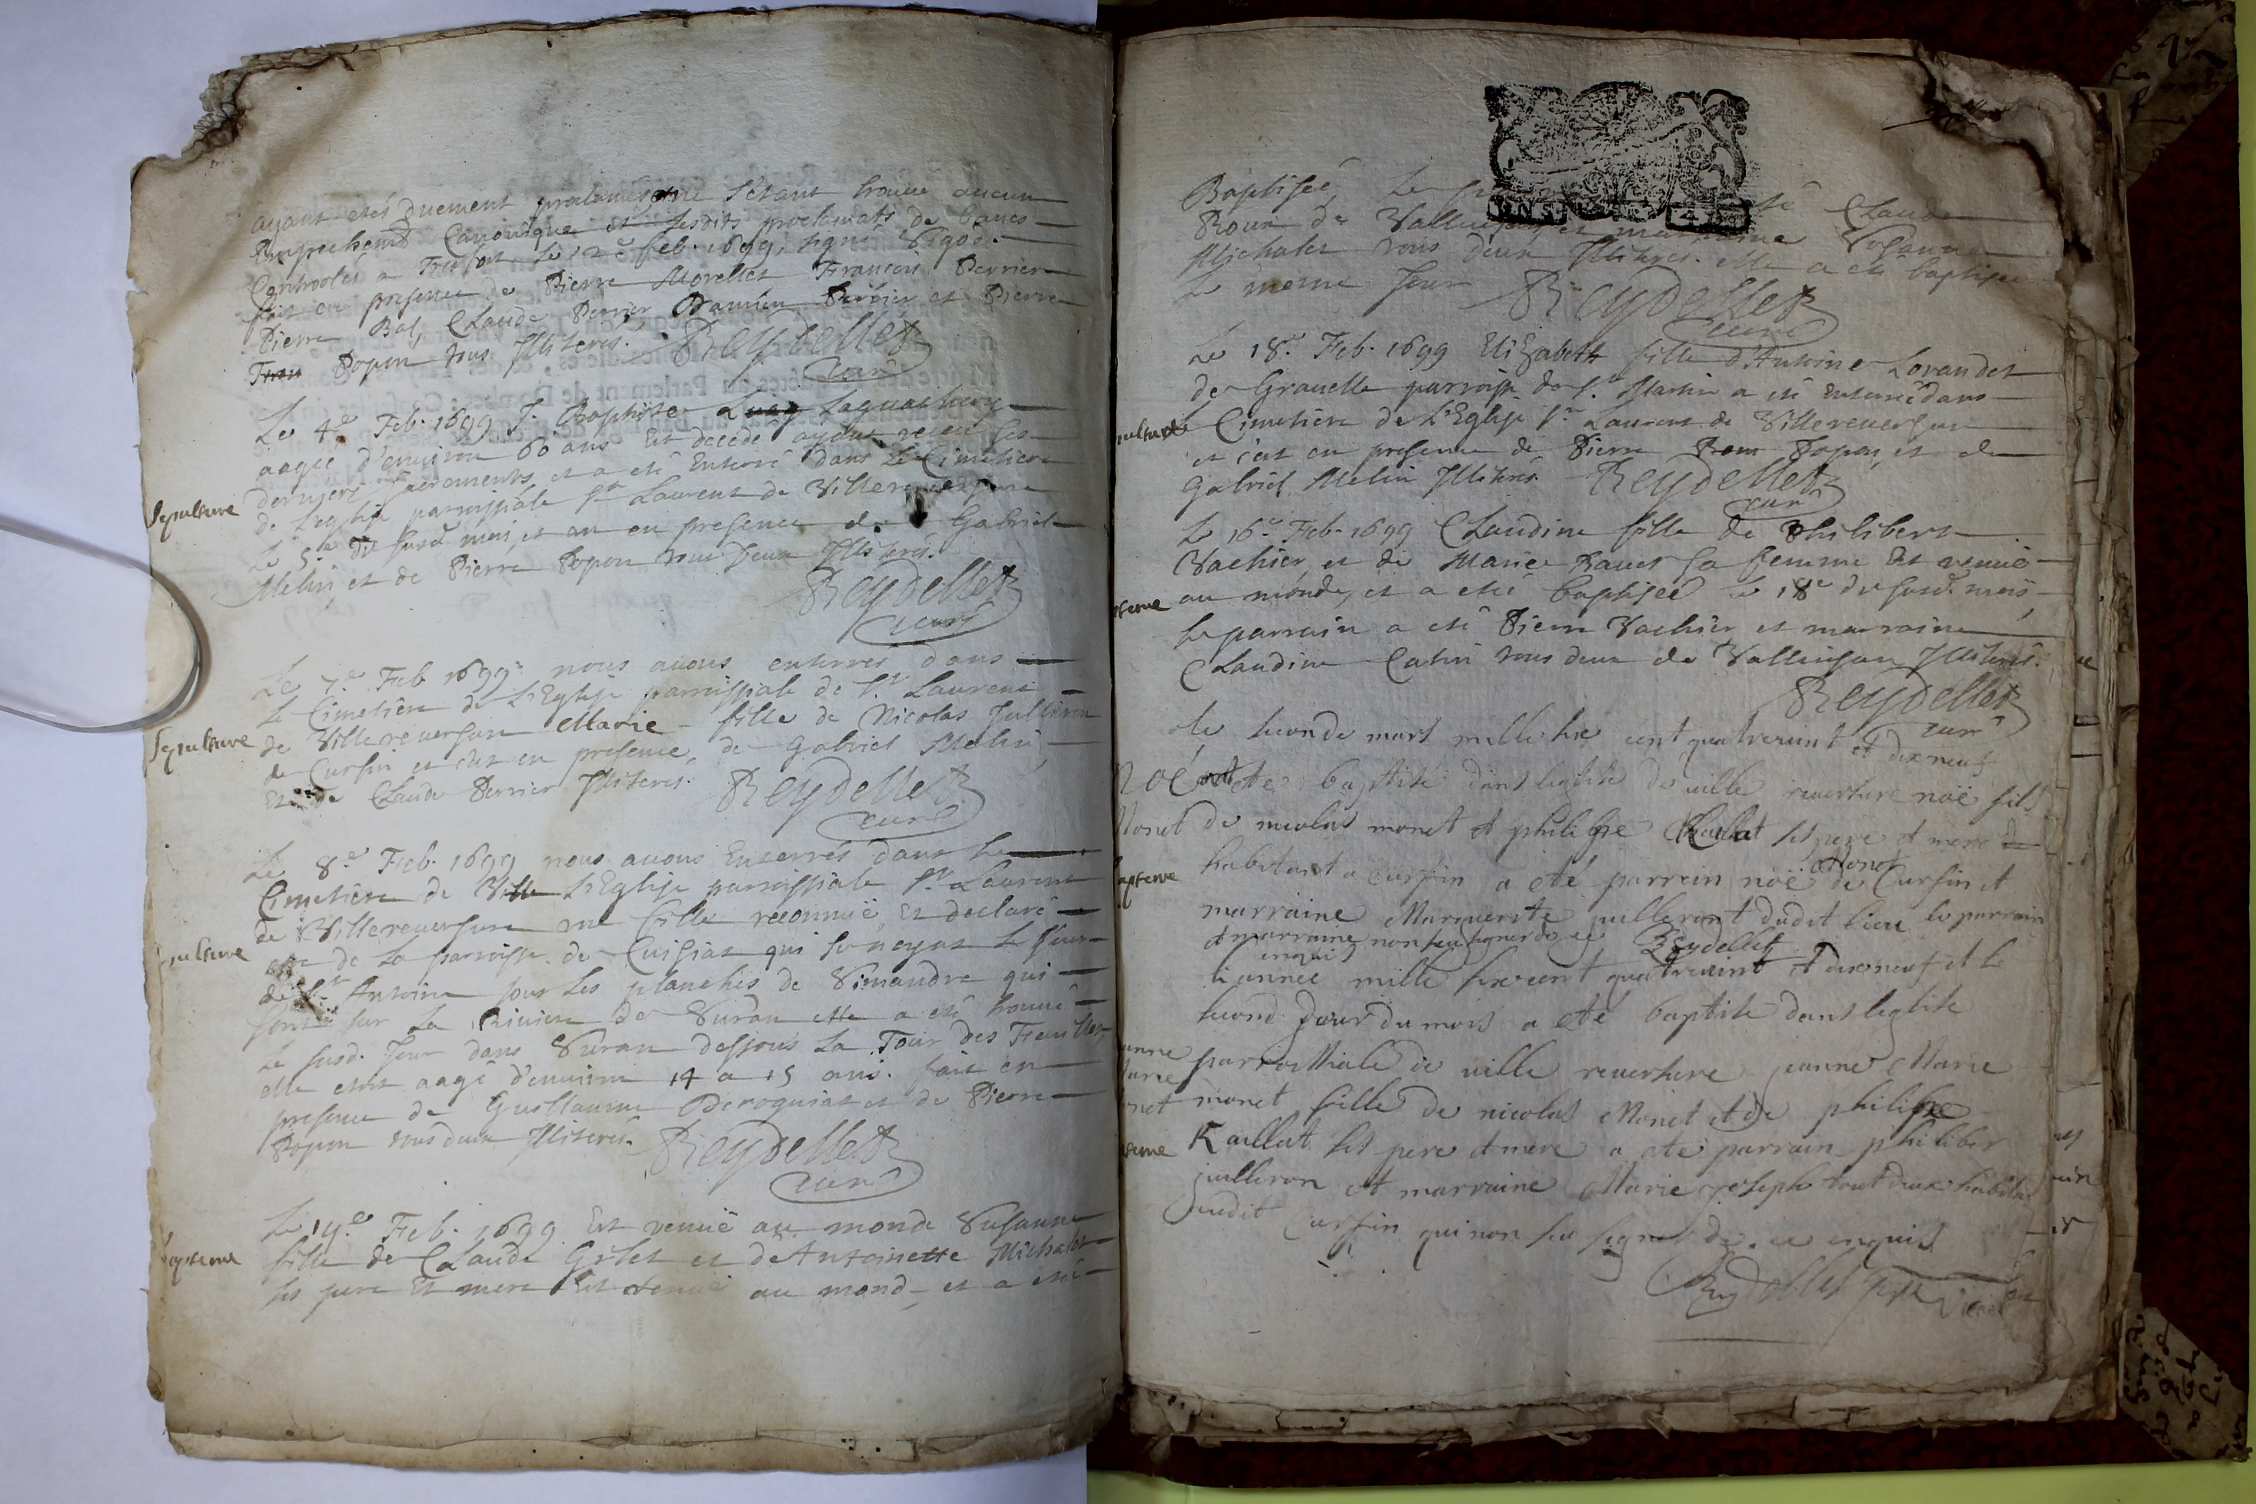 ayant estés duement proclamés et ne s'etant trouvé aucun
Empechemt Canonique et lesdits proclamats de bancs
Controolés a Treffort le 12e feb. 1699, signé Vigod.
fait en presence de Pierre Morellet François Perrier
Pierre Bal, Claude Perrier Damien Perrier et Pierre
Popon tous Illiterés. Reydellet
curé
Le 4e Feb. 1699 J. Baptiste
aagé d'environ 60 ans Est decedé ayant receu ses
derniers sacrements, et a eté Enterré dans le Cimetiere
Sepulture
de l'eglise parroissiale St Laurent de Villereversure
Le 5e du susd. mois, et an en presence de Gabriel
Melin et de Pierre Popon tous deux Illiterés.
Reydellet
curé
Le 7e Feb 1699 nous avons enterrés dans
le Cimetiere de L'Eglise parroissiale de St Laurent
Sepulture
de Villereversure Marie fille de Nicolas Jullieron
de Cursin et c'est en presence, de Gabriel Melin
Et de Claude Perrier Illiterés. Reydellet
curé
Le 8e Feb. 1699 nous avons Enterrés dans le
Cimetiere de L'Eglise parroissiale St Laurent
de Villereversure une fille reconnuë, Et declaré
Sepulture
de la parroisse de Cuisiat qui se noyat le jour
de St Antoine sous les planches de Simandre qui
sont sur la Riviere de Suran elle a eté trouvé
le susd. Jour dans Suran dessous la Tour des Feuilles
elle etoit aagé d'environ 14 a 15 ans. fait en
presence de Guillaume Deroguiat et de Pierre
Popon tous deux Illiterés. Reydellet
curé
Le 14e Feb. 1699 Est venuë au monde Susanne
Bapteme
fille de Claude Grilet et de Antoinette Michalet
ses pere Et mere Est venuë au mond, et a eté
Baptisée, le Claude
Roux de Vallin et marraine Susanne
Michalet tous deux Illitrés. elle a eté baptisee
le meme jour Reydellet
curé
Le 18e Feb. 1699 Elizabeth fille d'Antoine Lorandet
de Granelle parroisse de St Martin a eté Enterré dans
Sepulture
le Cimetiere de L'Eglise St Laurent de Villereversure
et c'est en presence de Pierre Popon, et de
Gabriel Melin Illitrés Reydellet
curé
Le 16e Feb. 1699 Claudine fille de Philibert
Vachier, et de Marie Ravet sa femme Est venuë
Bapteme
au monde, et a eté baptisée le 18e du susd. mois,
le parrain a eté Pierre Vachier et marraine
Claudine Catin tous deux de Vallinsan Illitrés.
Reydellet
curé
le second mars mille six cent quatrevint et dix neuf
Noé
a eté baptisé dans leglise de ville reversure noë fils
Monet
de nicolas monet et philippe Raillat ses pere et mere
habitant a cursin a eté parrein noë Monet de Cursin et
Bapteme
marraine Marguerite juilleront dudit lieu le parrain
et marraine non seu signer de ce
enquis Reydellet
L'année mille six cent quatrevint et dixneuf et le
second jour du mois a eté baptisé dans leglise
Jeanne
Marie
parroissiale de ville reversure jeanne Marie
Monet
monet fille de nicolas Monet et de philippe
Bapteme
Raillat ses pere et mere a eté parrain philiber
juilleron et marraine Marie joseph tout deux habitant
judit Cursin qui non seu signer de ce enquis
Reydellet